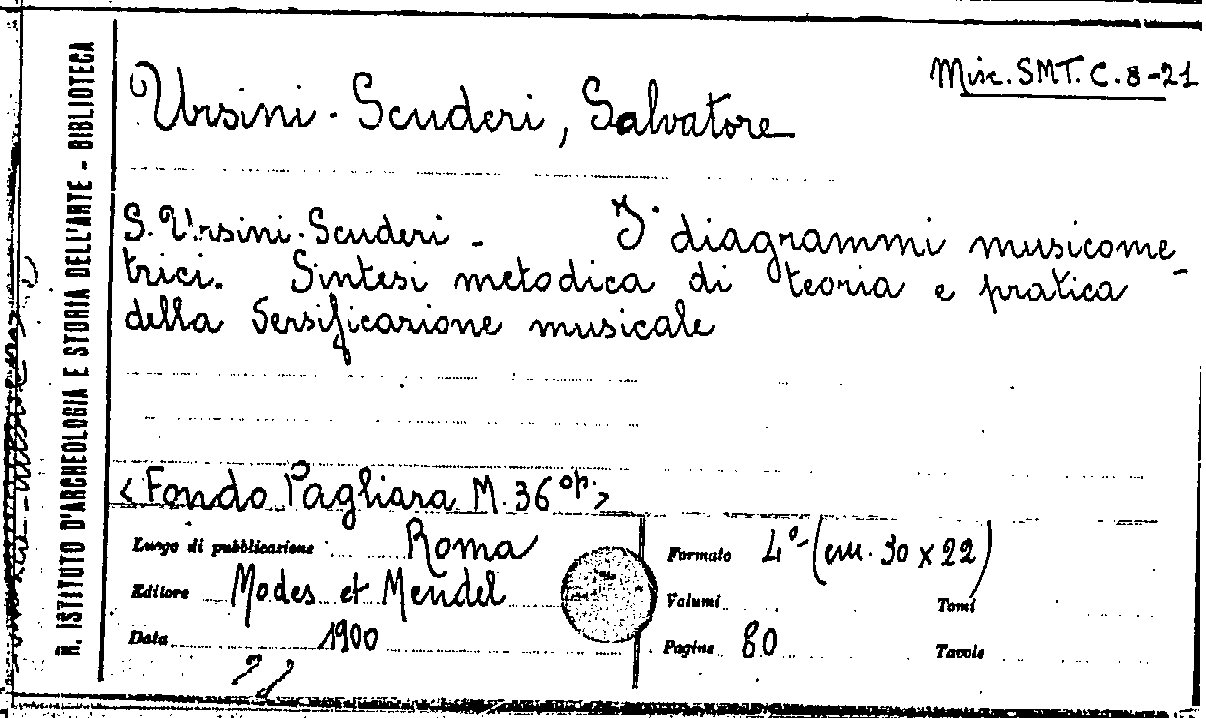 Misc. SMT. C. 8-21
Ursini-Scuderi, Salvatore
S. Ursini-Scuderi - I diagrammi musicome-
trici. Sintesi metodica di teoria e pratica
della versificazione musicale
<Fondo Pagliara M. 36 op.>
Luogo di pubblicazione Roma
Editore Modes et Mendel
Data 1900
Formato 4° (cm. 30 x 22)
Volumi Tomi
Pagine 80 Tavole
R. ISTITUTO D'ARCHEOLOGIA E STORIA DELL'ARTE - BIBLIOTECA